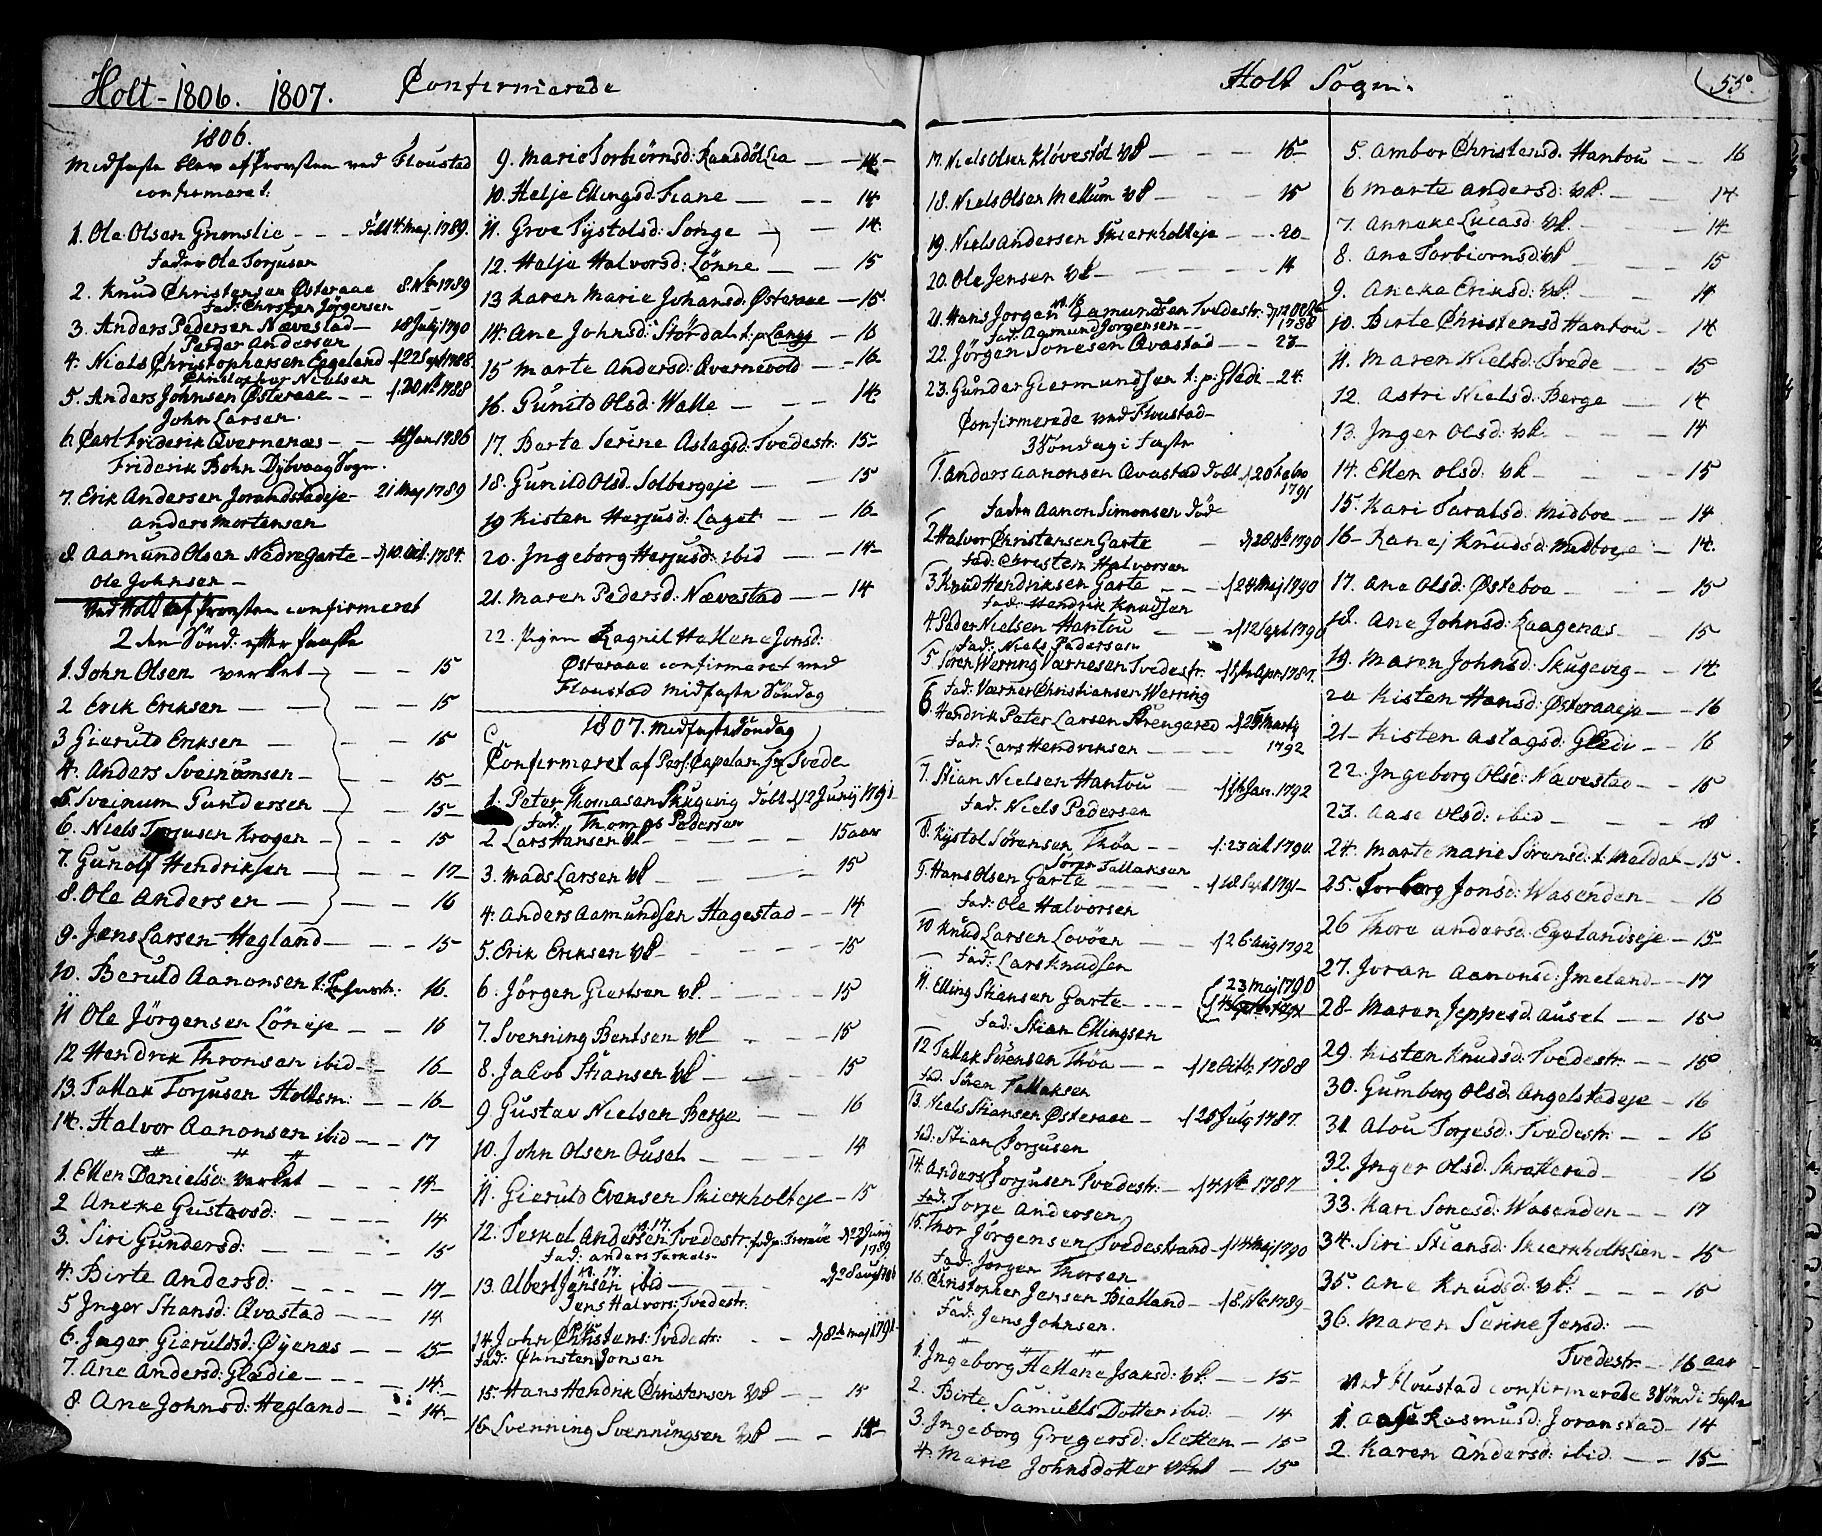 Holt - 1806. 1807. Confirmerede
1806.
Midfaste blev af Provsten ved Flaustad
confirmeret.
1. Ole Olsen Grimslie - - - født 4 maj. 1789.
Fader Ole Torjusen
2. Knud Christensen Østeraae 8. Nbr 1789
Fad: Christen Jørgensen
3. Anders Pedersen Nævestad - 18 July 1790
Peder Andersen
4. Niels Christophersen Eggeland f 22 Sept 1788.
Christopher Nielsen
5. Anders Johnsen Østeraae - - f. 20 Nbr 1788
John Larsen.
6. Carl Friderik Qvernenæs - - Jan 1786
Friderik Bohn Dybvaag Sogn.
7. Erik Andersen Jorandstadeje - 21 Maj 1789
Anders Mortensen
8. Aamund Olsen Nedregarte - d 10. Oct. 1784.
Ole Johnsen -
Ved Holt af Provsten confirmeret
2den Sönd: efter Paaske
1. John Olsen verket - - - 15
2 Erik Eriksen - - - 15
3 Gieruld Eriksen - - - 15
4. Anders Sveinumsen - - 15
5. Sveinum Gundersen - - 15
6. Niels Torjusen Krogen - - 15
7. Gunolf Hendriksen - - 17
8. Ole Andersen - - - 16
9. Jens Larsen Hegland - - - 15
10. Beruld Aanonsen 16.
11 Ole Jörgensen Löneje - - 16
12 Hendrik Thronsen ibid - - 16
13. Tallak Torjusen Holtsm: - - 16
14. Halvor Aanonsen ibid - - - 17
1. Ellen Danielsd: Verket - - - 14
2 Aneke Gustavsd: - - - - 14
3. Siri Gundersd: - - - - 15
4. Birte Andersd: - - - - 17
5 Inger Stiansd: Qvastad - - - 14
6. Inger Gierulsd: Öyenæs - - 15
7. Ane Andersd: Glædie - - - 14.
8. Ane Johnsd: Hegland - - 14
9. Marie Torbiörnsd: Raasdöl Lia - - 14
10. Helje Ellingsd: Fiane - - - 14
11. Groe Tystolsd: Songe - - 14.
12. Helje Halvorsd: Lönne - - 15
13 Karen Marie Johansd: Østeraae - 15.
14. Ane Johnsd: Stördal t: p: Langj - 16
15 Marte Andersd: Qvernevold - - 16.
16. Gunild Olsd: Walle - - - 14
17. Berte Serine Aslagsd: Tvedestr: 15
18. Gunild Olsd: Solbergeje - - 15
19 Kisten Herjusd: Laget - - 16
20. Ingeborg Herjusd: ibid - - 14
21. Maren Pedersd: Nævestad - - 14
22. Pigen Ragnil Hellene Jonsd:
Østeraae confirmeret ved
Flaustad Midfaste Söndag
1807. Midfaste Söndag
Confirmeret af Pers: Capelan Tvede
1. Peter Thomasen Skugevig født d 12 Junij 1791
Fad: Thomas Pedersen
2 Lars Hansen Vl - - - 15 aar
3. Mads Larsen Vl - - - 15
4. Anders Aamundsen Hagestad - - 14
5. Erik Eriksen Vl - - - 15
6. Jörgen Giertsen vl. - - - 15
7. Svenning Bentsen Vl - - - 15
8. Jacob Stiansen Vl - - - 15
9 Gustav Nielsen Berge - - 16
10. John Olsen Ouset - - - 14
11. Gieruld Evensen Skierkholteje - 15
12. Terkel Andersen Tvedestr: d 27 Junij 1789
Fad: Anders Terkels-
13. Albert Jensen ibid - - d 28 aug 1786
Jens Halvors: Tvedestr:
14. John Christens: Tvedestr: - - d 8de maj 1791
Fad: Christen Jonsen
15. Hans Hendrik Christensen Vl - - 15
16. Svenning Svenningsen Vl - - 15
Holt Sogn.
55
17. Niels Olsen Klövestöl Vl - - - 15
18. Niels Olsen Mellum Vl - - - 15
19. Niels Andersen Skierkholteje - - 20
20. Ole Jensen Vl - - - 14
21. Hans Jorgen Aamundsen Tvedestr: d 12 Octb 1788
Fad: Aamund Jorgensen - -
22. Jörgen Sonesen Qvastad - - 23
23. Gunder Giermundsen t: p: Gledi - 24.
Confirmerede ved Flaustad
3 Söndag i Faste
1. Anders Aanonsen Qvastad født d 20 Febr 1791
Faden Aanon Simonsen död
2 Halvor Christensen Garte - d 28 Nbr 1790
Fad: Christen Halvorsen
3. Knud Hendriksen Garte - - d 24 Maj 1790
Fad: Hendrik Knudsen
4. Peder Nielsen Hantou - - d 12 Sept 1790
Fad: Niels Pedersen
5 Sören Werring Værnesen Tvedestr. Apr 1787.
Fad: Værner Christiansen Werring
6. Hendrik Peter Larsen Strengered d 25 Martij
Fad: Lars Hendriksen - - - 1792
7. Stian Nielsen Hantou - - Jan. 1792
Fad: Niels Pedersen
8. Kystol Sörensen Thöa - - f. 23 Oct 1790.
Sören Tallaksen
9. Hans Olsen Garte - - - d 18 Sept 1791
Fad: Ole Halvorsen
10 Knud Larsen Lovöen - - d 26 Aug 1792
Fad: Lars Knudsen
11. Elling Stiansen Garte - - - 23 Maj 1790
Fad: Stian Ellingsen
12 Tallak Sörensen Thöa - - d 12 Octb 1788
Fad: Sören Tallaksen
13. Niels Stiansen Østeraae - d 25 July 1787.
Fad: Stian Torjusen
14. Anders Torjusen Tvedestr: - d 4 Nbr 1787
Fad: Torje Andersen
15. Thor Jörgensen Tvedestrand - d 14 Maj 1790
Fad: Jörgen Thorsen
16. Christopher Jensen Bietland - d 8. Nbr 1789
Fad: Jens Johnsen.
1. Ingeborg Hellene Isaksd: Vl. - - 15
2. Birte Samuels Dotter ibid - - 14
3. Ingeborg Gregersd: Sletten - 15
4. Marie Johnsdotter Vrket - 15
5. Ambor Christensd. Hantou - - 16
6 Marte Andersd: Vl. - - - 14
7. Anneke Lucasd: Vl. - - - 14
8. Ane Torbiornsd: Vl - - - 15
9. Aneke Eriksd: Vl. - - - 14
10. Birte Christensd Hantou - - 14
11. Maren Nielsd: Tvede - - 15
12. Astri Nielsd: Berge - - 14
13. Inger Olsd: Vl. - - - 14
14. Ellen Olsd: Vl - - - 15
15. Kari Taralsd: Midboe - - - 14
16 - Ranej Knudsd: Midboeje - 14.
17. Ane Olsd: Østeboe - - - 15
18. Ane Johnsd: Kaagenæs - - 15
19. Maren Johnsd: Skugevig - - 14
20 Kisten Hansd: Østeraaeje - - 16
21 - Kisten Aslagsd: Gledi - - 16
22. Ingeborg Olsd: Nævestad - - 15
23. Aase Olsd: ibid - - - 18
24. Marte Marie Sörensd: t. Mældal - 15.
25. Torborg Jonsd: Wasenden - - 16
26 Thore Andersd: Egelandseje - 15
27. Joran Aanonsd: Imeland - - 17
28 - Maren Jeppesd. Auset - - 15
29. Kisten Knudsd: Tvedestr: - - 15
30. Gumborg Olsd: Angelstadeje - 16
31. Alou Torjesd: Tvedestr: - - 16
32. Inger Olsd: Skratterud - - 16
33. Kari Sonesd: Wasenden - - 17
34. Siri Stiansd: Skierkholtslien - 15
35. Ane Knudsd: Vl. - - - 15
36. Maren Serine Jensd: - -
Tvedestr: - 16 aar
Ved Flaustad confirmerede 3 Sönd i Faste
1. Aase Rasmusd: Joranstad - 14
2. Karen Andersd: ibid - - 15